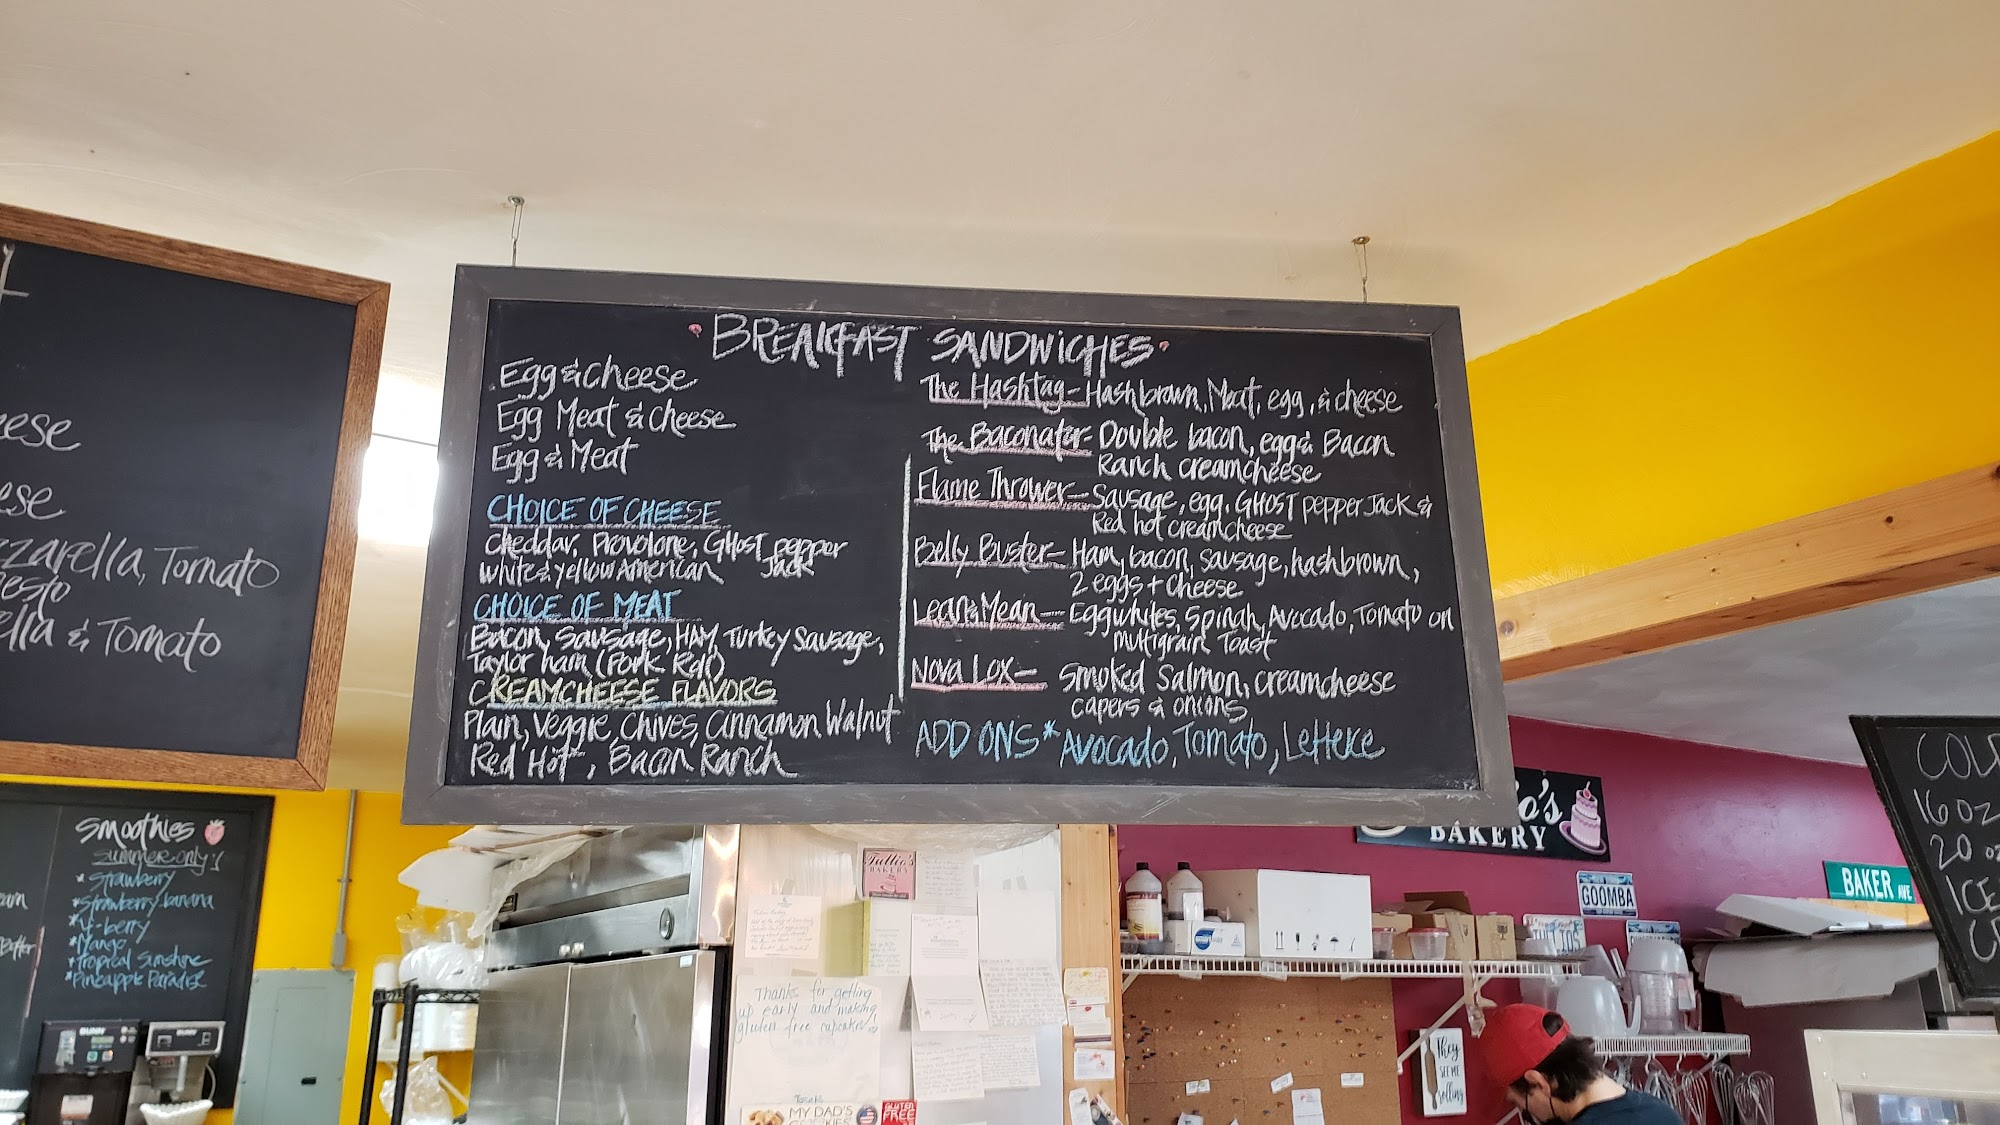 eese
ese
zzarella, Tomato
esto
ella & Tomato
• BREAKFAST SANDWICHES •
Egg & Cheese
Egg Meat & Cheese
Egg & Meat
CHOICE OF CHEESE
Cheddar, Provolone, GHOST pepper Jack
White & yellow American
CHOICE OF MEAT
Bacon, Sausage, HAM, Turkey Sausage,
Taylor ham (Pork Roll)
CREAMCHEESE FLAVORS
Plain, Veggie, Chives, Cinnamon Walnut
Red Hot, Bacon Ranch
The Hashtag - Hashbrown, Meat, egg, & cheese
The Baconator - Double bacon, egg & Bacon
Ranch creamcheese
Flame Thrower - Sausage, egg, GHOST pepper Jack &
Red hot creamcheese
Belly Buster - Ham, bacon, sausage, hashbrown,
2 eggs + Cheese
Lean & Mean - Eggwhites, Spinah, Avocado, Tomato on
multigrain Toast
Nova Lox - Smoked Salmon, creamcheese
capers & onions
ADD ONS * Avocado, Tomato, Letteuce
Smoothies
Summer only!
* Strawberry
* Strawberry banana
* 4-berry
* Mango
* Tropical Sunshine
* Pineapple Paradise
BUNN
BUNN
Tullio's
BAKERY
Thanks for getting
up early and making
gluten free cupcakes!
MY DAD'S
GLUTEN
FREE
BAKERY
GOOMBA
BAKER AVE
They
SEE ME
rolling
COL
16 OZ
20 oz
ICE